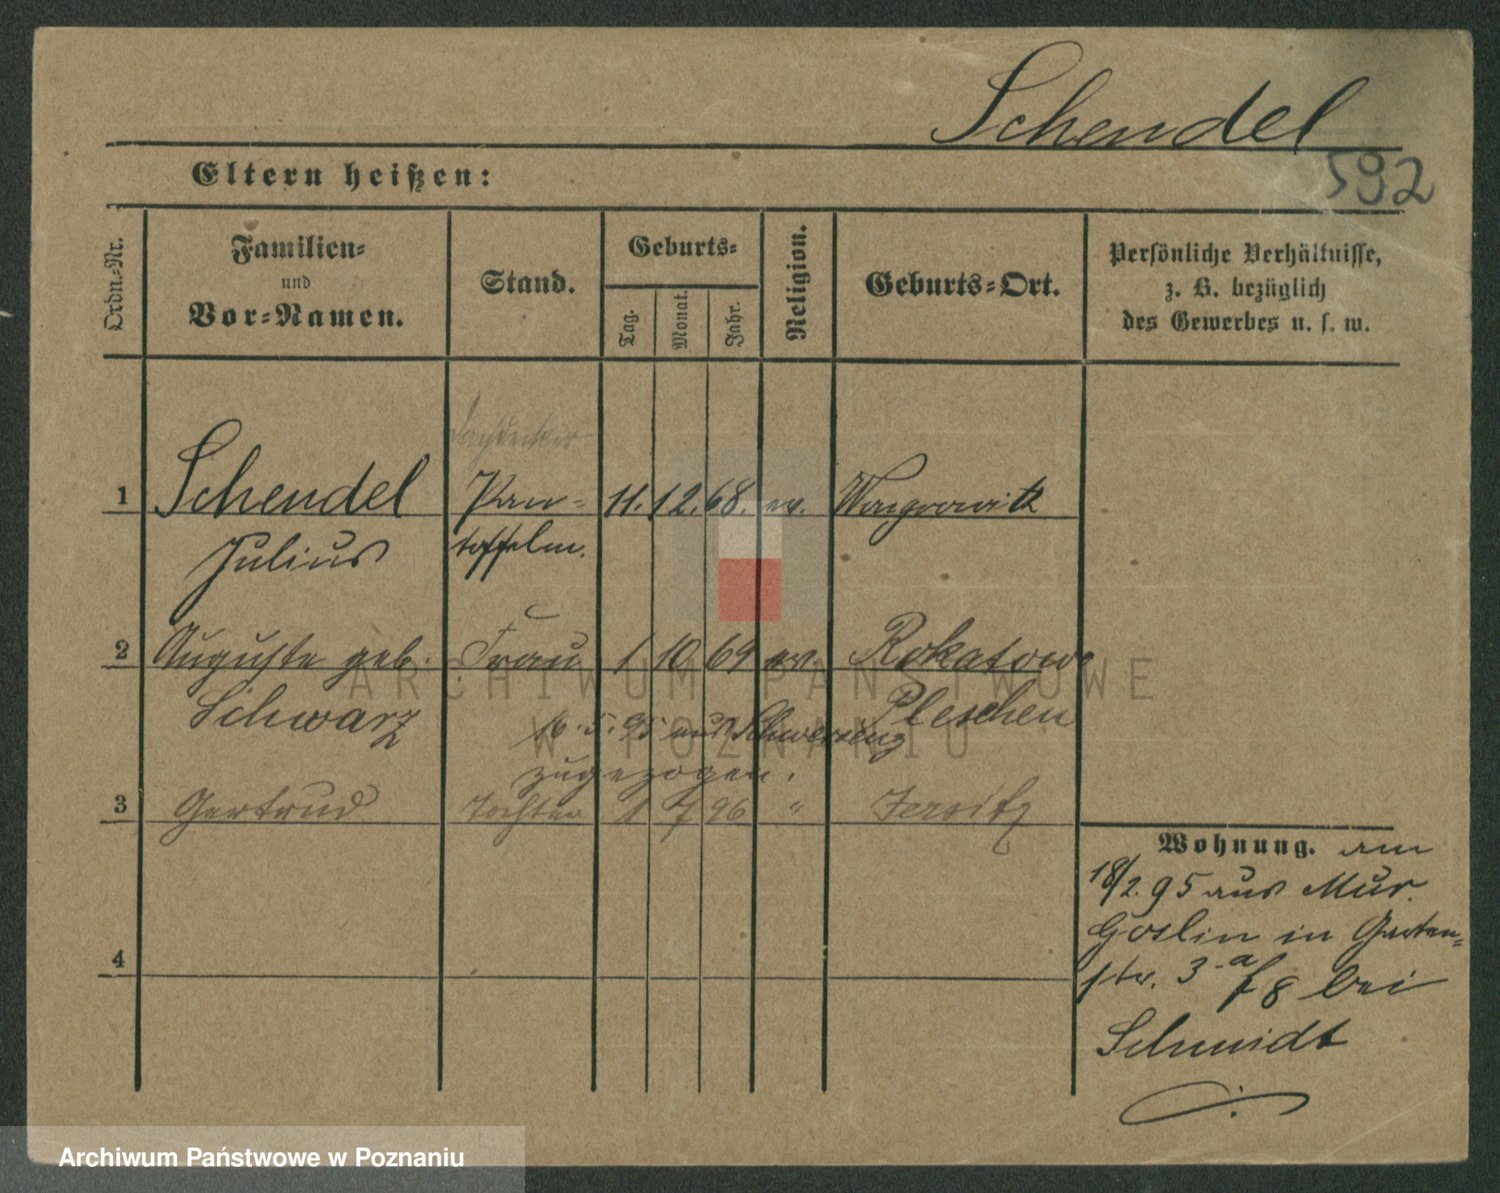 Schendel
592
Eltern heißen:
Ordn.-Nr.
Familien-
und
Vor-Namen.
Stand.
Geburts-
Tag.
Monat.
Jahr.
Religion.
Geburts-Ort.
Persönliche Verhältnisse,
z. B. bezüglich
des Gewerbes u. s. w.
Dachdecker
1 Schendel Pan- 11. 12. 68. ev. Wongrowitz
Julius toffelm.
2 Auguste geb. Frau 1 10 69 ev. Rokatow
Schwarz Pleschen
16.5.95 aus Schwersenz
zugezogen.
3 Gertrud Tochter 1 7 96 " Jersitz
4
Wohnung. am
18/2.95 aus Mur.
Goslin in Garten-
str. 3a f 8 bei
Schmidt
ARCHIWUM PAŃSTWOWE
W POZNANIU
Archiwum Państwowe w Poznaniu